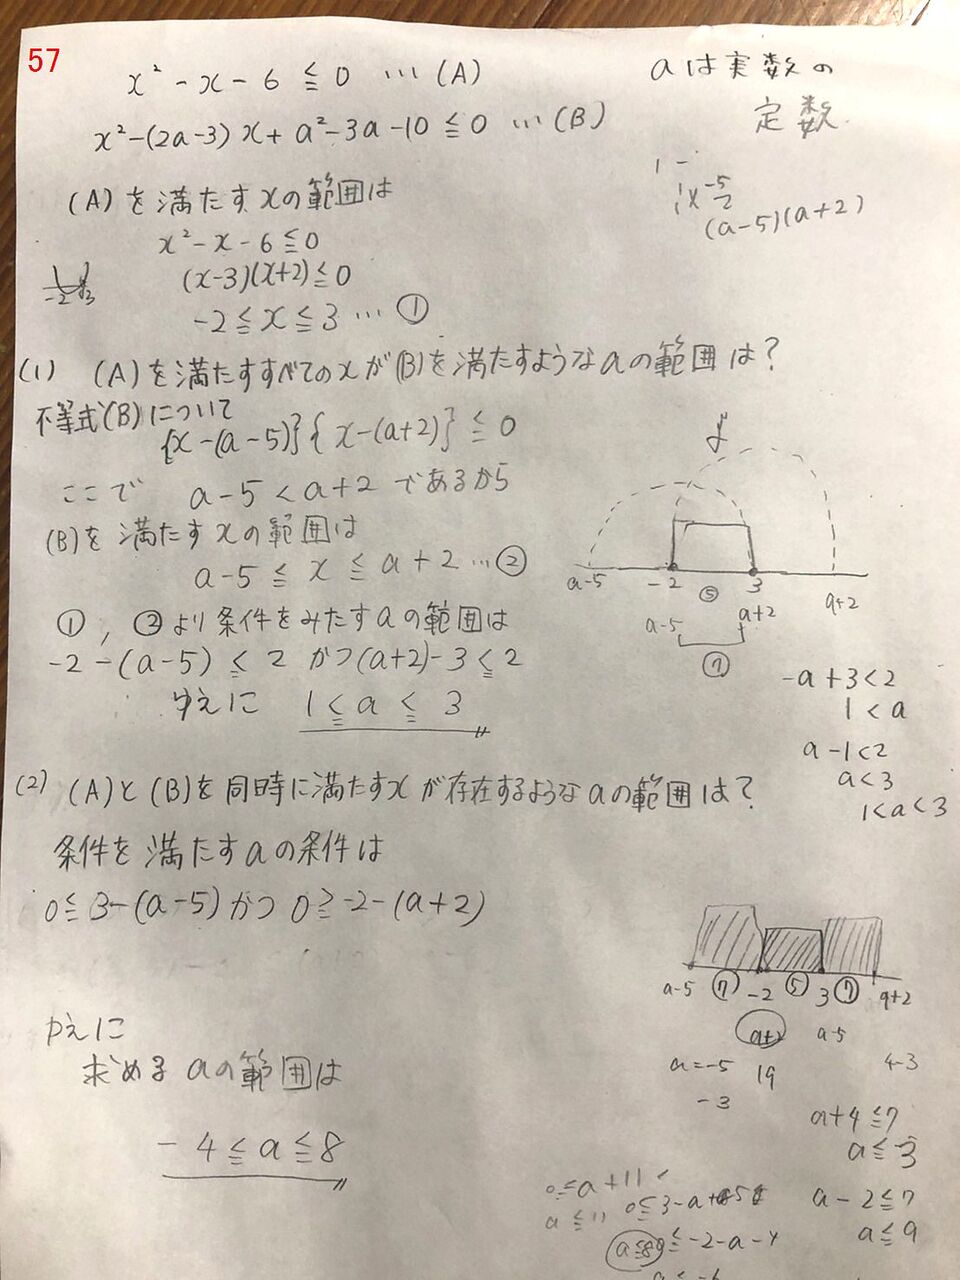 57
x² - x - 6 ≦ 0 … (A)
aは実数の
定数
x² - (2a-3)x + a² - 3a - 10 ≦ 0 … (B)
(a-5)(a+2)
(A)を満たすxの範囲は
x² - x - 6 ≦ 0
(x-3)(x+2) ≦ 0
-2 3
-2 ≦ x ≦ 3 … ①
(1) (A)を満たすすべてのxが(B)を満たすようなaの範囲は?
不等式(B)について
{x-(a-5)}{x-(a+2)} ≦ 0
ここで a-5 < a+2 であるから
(B)を満たすxの範囲は
a-5 ≦ x ≦ a+2 … ②
a-5 -2 ⑤ 3 a+2
a-5 a+2
⑦
①, ②より条件をみたすaの範囲は
-2-(a-5) ≦ 2 かつ (a+2)-3 ≦ 2
ゆえに 1 ≦ a ≦ 3
-a+3<2
1<a
a-1<2
a<3
1<a<3
(2) (A)と(B)を同時に満たすxが存在するようなaの範囲は?
条件を満たすaの条件は
0 ≦ 3-(a-5) かつ 0 ≧ -2-(a+2)
a-5 ⑦ -2 ⑤ 3 ⑦ a+2
a+2 a-5
a=-5 19 4-3
-3
a+4≦7
a≦3
ゆえに
求めるaの範囲は
-4 ≦ a ≦ 8
0≦a+11
a≦11
a-2≦7
a≦9